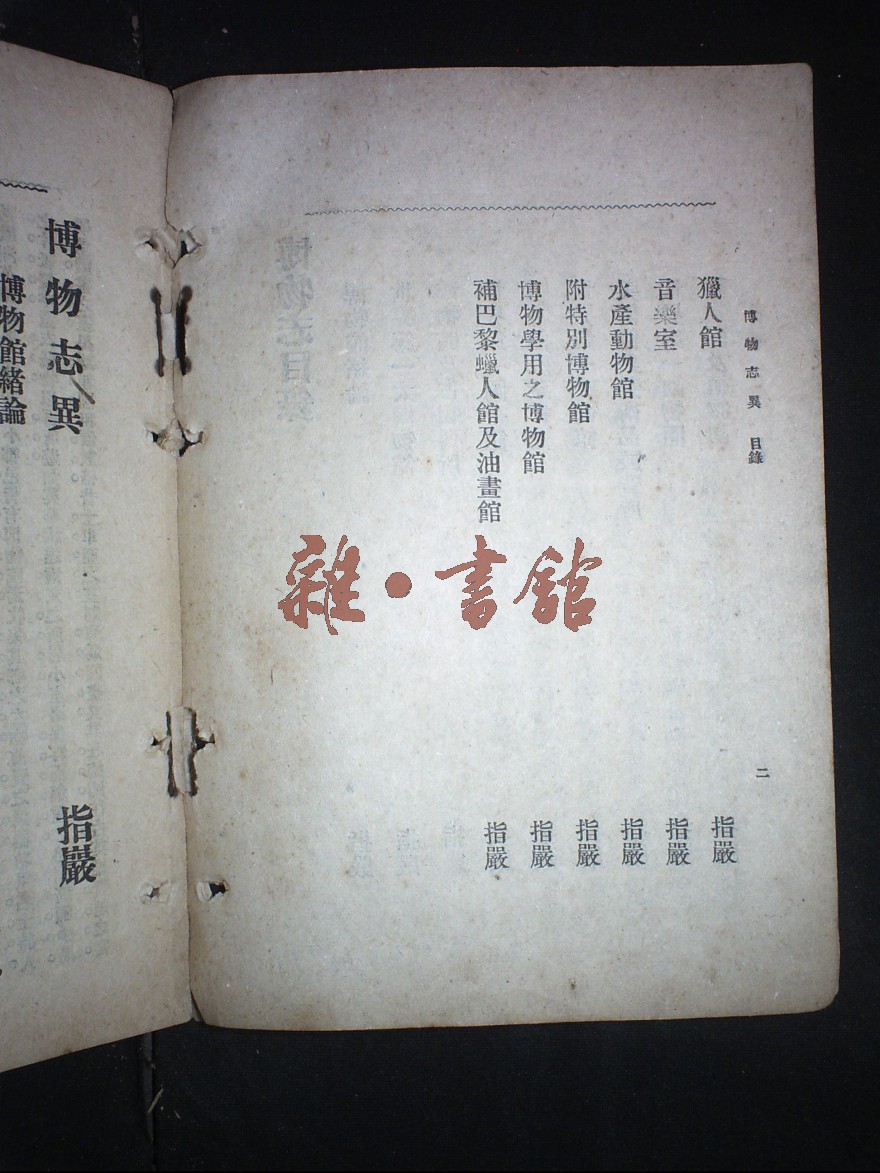 博物志異 目錄
二
獵人館 指嚴
音樂室 指嚴
水產動物館 指嚴
附特別博物館 指嚴
博物學用之博物館 指嚴
補巴黎蠟人館及油畫館 指嚴
雜·書館
博物志異
指嚴
博物館緒論